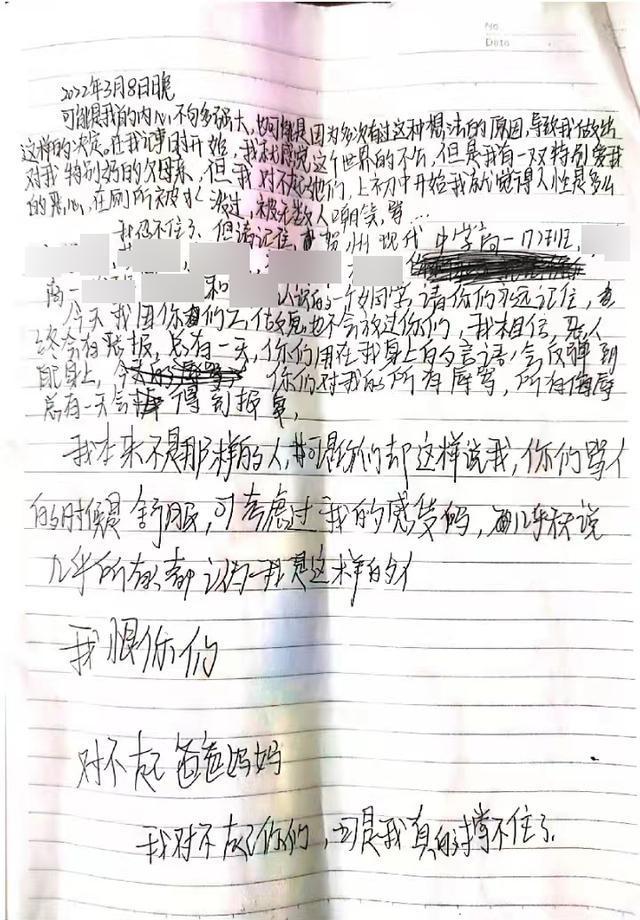 No
Date
2022年3月8日晚
可能是我的内心不够多强大,也可能是因为多次有过这种想法的原因,导致我做出
这样的决定。在我记事时开始,我就感觉这个世界的不公,但是我有一双特别爱我
对我特别好的父母亲,但我对不起他们,上初中开始我就觉得人性是多么
的恶心,在厕所被水泼过,被无数人嘲笑,骂…
我忍不住了,但请记住,贺州现代中学高一17班
高一 和 认识的一个女同学,请你们永远记住,
今天我因你们 也不会放过你们,我相信,恶人
终会有恶报,总有一天,你们用在我身上的言语,会反弹到
自己身上,你们对我的所有辱骂,所有侮辱
总有一天会得到报复,
我本来不是那样的人,可是你们却这样说我,你们骂人
的时候是舒服,可考虑过我的感受吗,被几乎 说
几乎所有 都认为我是这样的人
我恨你们
对不起爸爸妈妈
我对不起你们,可是我真的撑不住了.